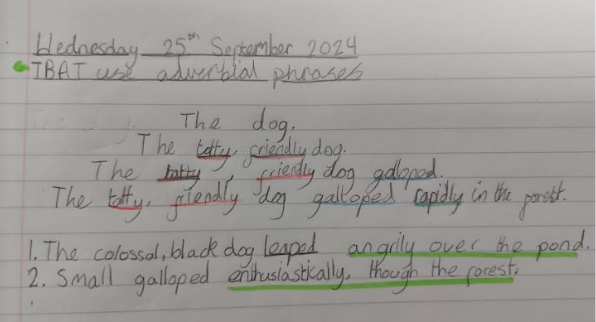 Wednesday 25th September 2024
TBAT use adverbial phrases
The dog.
The tatty, friendly dog.
The tatty, friendly dog galloped.
The tatty, friendly dog galloped rapidly in the forest.
1. The colossal, black dog leaped angrily over the pond.
2. Small galloped enthusiastically, though the forest.